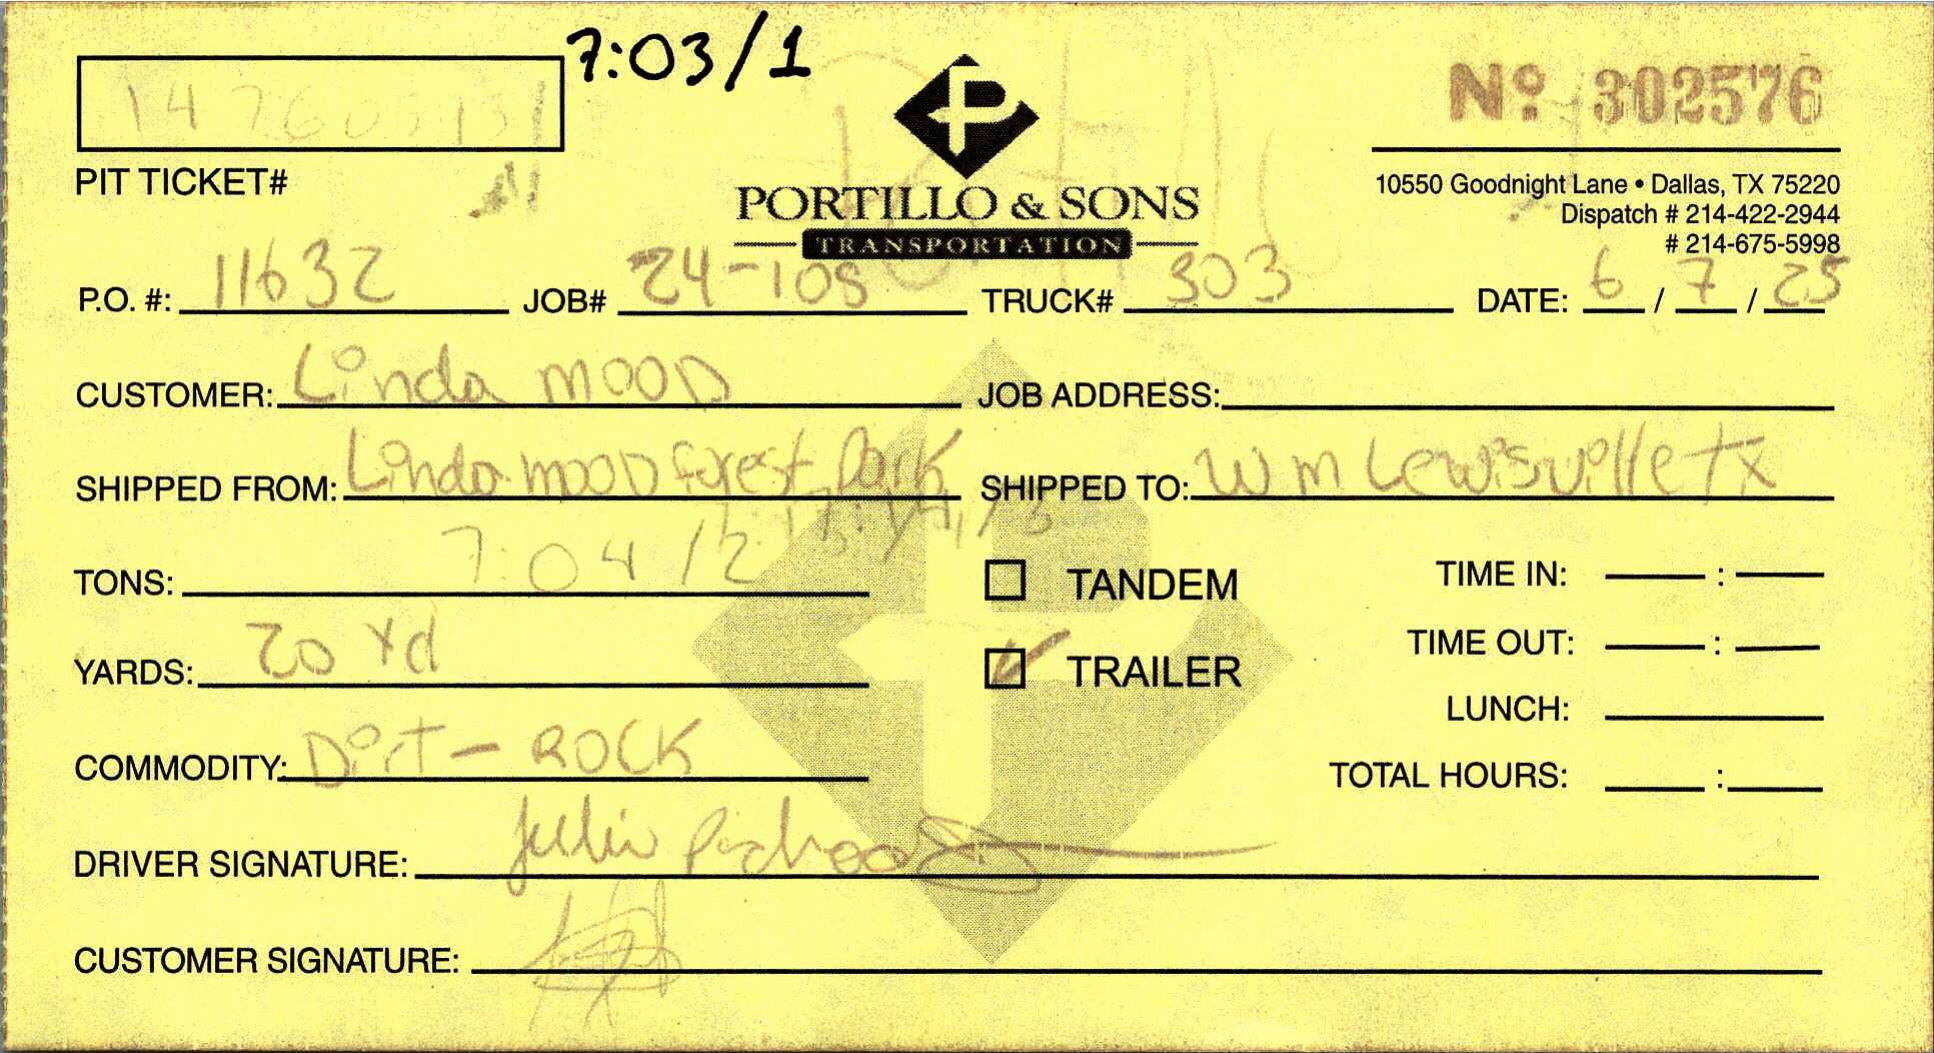 7:03/1
Nº 302576
PIT TICKET#
PORTILLO & SONS
TRANSPORTATION
10550 Goodnight Lane • Dallas, TX 75220
Dispatch # 214-422-2944
# 214-675-5998
P.O. #: 11632 JOB# 24-108 TRUCK# 303 DATE: 6 / 7 / 25
CUSTOMER: Linda MOOD JOB ADDRESS:
SHIPPED FROM: Linda MOOD forest Park SHIPPED TO: WM Lewisville TX
TONS: 7:04/2
TANDEM TIME IN: :
YARDS: 20 Yd
TRAILER TIME OUT: :
LUNCH:
COMMODITY: Dirt - ROCK
TOTAL HOURS: :
DRIVER SIGNATURE: Julio
CUSTOMER SIGNATURE: